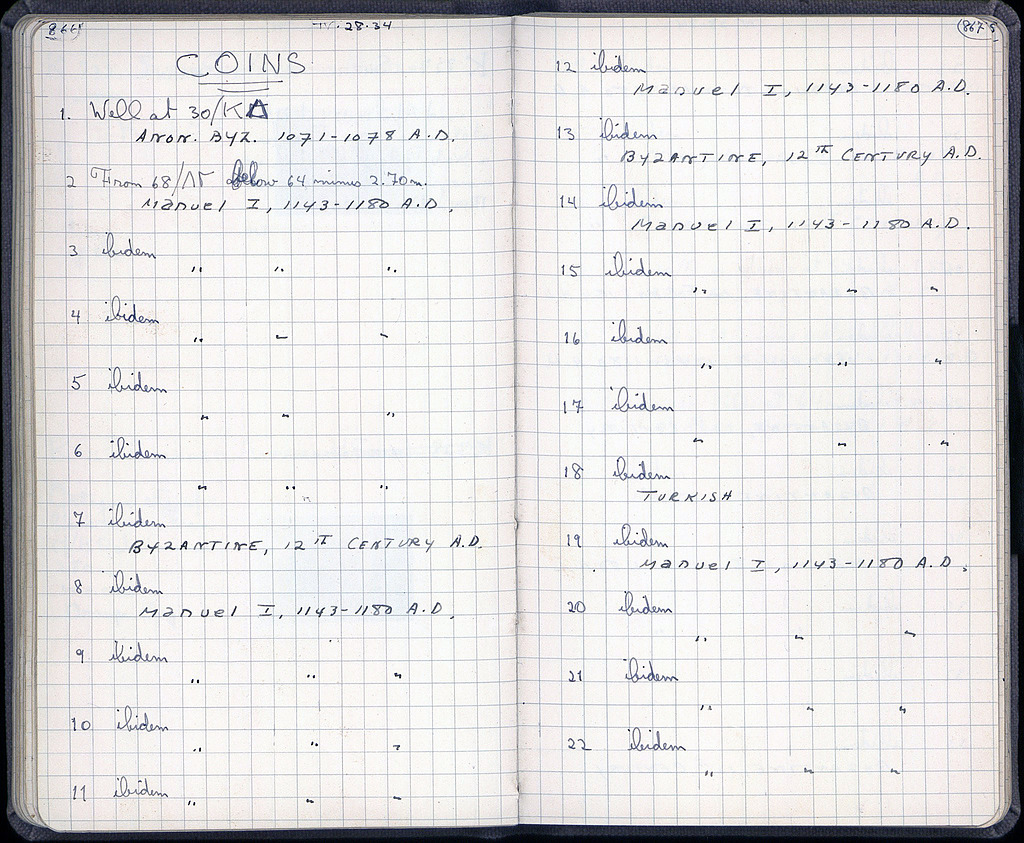 866
IV.28.34
COINS
1. Well at 30/KΔ
ANON. BYZ. 1071-1078 A.D.
2 From 68/ΛΓ below 64 minus 2.70m.
Manuel I, 1143-1180 A.D.
3 ibidem
" " "
4 ibidem
" " "
5 ibidem
" " "
6 ibidem
" " "
7 ibidem
BYZANTINE, 12TH CENTURY A.D.
8 ibidem
Manuel I, 1143-1180 A.D.
9 ibidem
" " "
10 ibidem
" " "
11 ibidem
" " "
867
12 ibidem
Manuel I, 1143-1180 A.D.
13 ibidem
BYZANTINE, 12TH CENTURY A.D.
14 ibidem
Manuel I, 1143-1180 A.D.
15 ibidem
" " "
16 ibidem
" " "
17 ibidem
" " "
18 ibidem
TURKISH
19 ibidem
Manuel I, 1143-1180 A.D.
20 ibidem
" " "
21 ibidem
" " "
22 ibidem
" " "